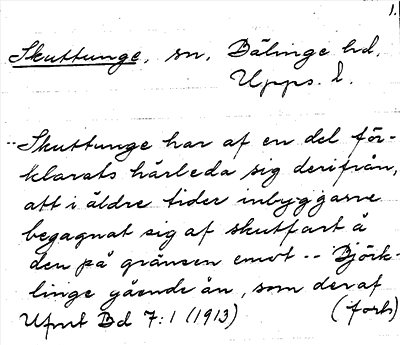 1.
Skuttunge, sn, Bälinge hd.
Upps. l.
-- Skuttunge har af en del för-
klarats härleda sig derifrån,
att i äldre tider inbyggarne
begagnat sig af skutfart å
den på gränsen emot -- Björk-
linge gående ån, som deraf
Ufmt Bd 7:1 (1913) (forts)